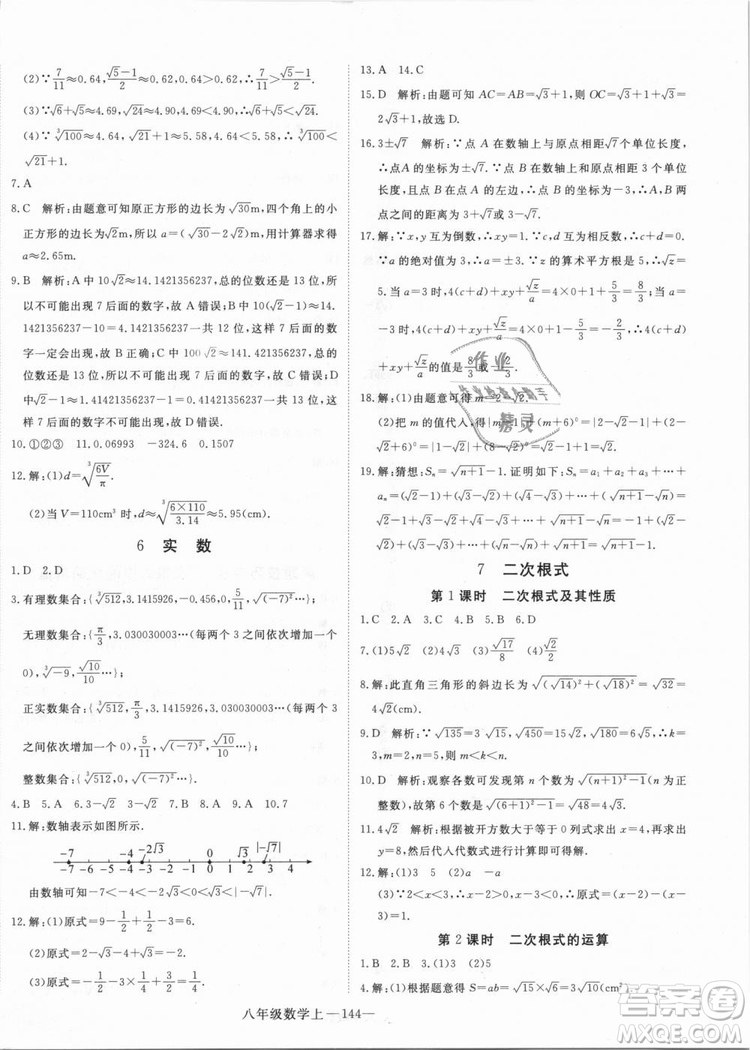 (2)∵7/11≈0.64,(√5-1)/2≈0.62,∴7/11>(√5-1)/2.
(3)∵√6+√5≈4.69,√24≈4.90,∴√6+√5<√24.
(4)∵∛100≈4.64,√21+1≈5.58,∴∛100<
√21+1.
7.A
8.C 解析:由题意可知原正方形的边长为√30m,四个角上的小
正方形的边长为√2m,所以a=(√30-2√2)m,用计算器求得
a≈2.65m.
9.B 解析:A中10√2=14.1421356237,总的位数还是13位,所
以不可能出现7后面的数字,故A错误;B中10(√2-1)=
14.1421356237一共12位,所以可能出现7后面的数
字,故B正确;C中100√2=141.421356237一共13位,
这样7后面的数字不可能出现,故C错误;
D中√2=1.41421356237,总的位数还是13位,这
样7后面的数字不可能出现,故D错误.
10.①②③ 11.0.06993 -324.6 0.1507
12.解:(1)d=∛(6V/π).
(2)当V=110cm³时,d=∛(6×110/3.14)≈5.95(cm).
6 实数
1.D 2.D
3.有理数集合:{∛512,3.1415926,-0.456,5/11,√(-7)²,…};
无理数集合:{π/3,3.030030003…(每两个3之间依次增加一个
0),∛-9,√10/11…};
正实数集合:{∛512,π/3,3.1415926,3.030030003…(每两个3
之间依次增加一个0),5/11,√10/11,√(-7)²…};
整数集合:{∛512,0,√(-7)²…}.
4.B 5.A 6.3-√2 3-√2 7.D 8.A 9.D 10.A
11.解:数轴表示如图所示.
-7 -4 -2√3 0 √3 |-√7|
-7 -6 -5 -4 -3 -2 -1 0 1 2 3 4
由数轴可知-7<-4<-2√3<0<√3<|-√7|.
12.解:(1)原式=9-1/2+1/2-3=6.
(2)原式=2-√3-4+√3-3=-5.
(3)原式=-1/√2×(-√2)-2×√3/√3=1-2=-1.
13.A 14.C
15.D 解析:由题可知AC=AB=√3+1,则OC=√3+1+√3=
2√3+1,故选D.
16.3±√7 解析:∵点B在数轴上与原点相距3个单位长度,
且在原点的左边,∴点B的坐标为-3,∵点A在数轴上与原点相距√7个单位长度,
∴点A的坐标为±√7,∴A,B两
点之间的距离为3±√7.
17.解:∵x,y互为倒数,∴xy=1.∵c,d互为相反数,∴c+d=0.
∵a的绝对值为3,∴a=±3.∵z的算术平方根是5,∴√z=
5.当a=3时,4(c+d)+xy+√z/a=4×0+1+5/3=8/3;当a=
-3时,4(c+d)+xy+√z/a=4×0+1-5/3=-2/3;∴4(c+
d)+xy+√z/a的值是8/3或-2/3.
18.解:(1)由题意可得m=2-√2.
(2)把m的值代入,得|m-1|+(m+6)⁰=|2-√2-1|+(2-
√2+6)⁰=|1-√2|+(8-√2)⁰=√2-1+1=√2.
19.解:猜想:Sₙ=√(n+1)-1.证明如下:Sₙ=a₁+a₂+a₃+…+
aₙ=(√2-1)+(√3-√2)+(√4-√3)+…+(√(n+1)-√n)=
√2-1+√3-√2+√4-√3+…+√(n+1)-√n=√(n+1)-1.
7 二次根式
第1课时 二次根式及其性质
1.C 2.A 3.C 4.A 5.B 6.D
7.(1)5√2 (2)√17/8 (3)4√2
8.解:此直角三角形的斜边长为√((√14)²+(√18)²)=√32=
4√2(cm).
9.D 解析:∵√135=3√15,√450=15√2,√180=6√5,∴k=
3,m=2,n=5,∴m<k<n.
10.D 解析:观察各数可发现第n个数为√(6(n-1)+2)=√(6n-4),
故第6个数为√(6(6-1)+2)=√32=4√2.
11.4√2 解析:根据被开方数大于等于0列式求出x=4,
y=8,然后代入代数式进行计算即可得解.
12.解:(1)3 5 (2)a -a
(3)∵2<x<3,∴√(x-2)²+√(x-3)²=x-2+3-x=1.
第2课时 二次根式的运算
1.B 2.B 3.(1)> (2)<
4.解:(1)根据题意得S=ab=√3×√5=√15(cm²).
八年级数学上—144—
作业
精灵
答案圈
MXQE.COM